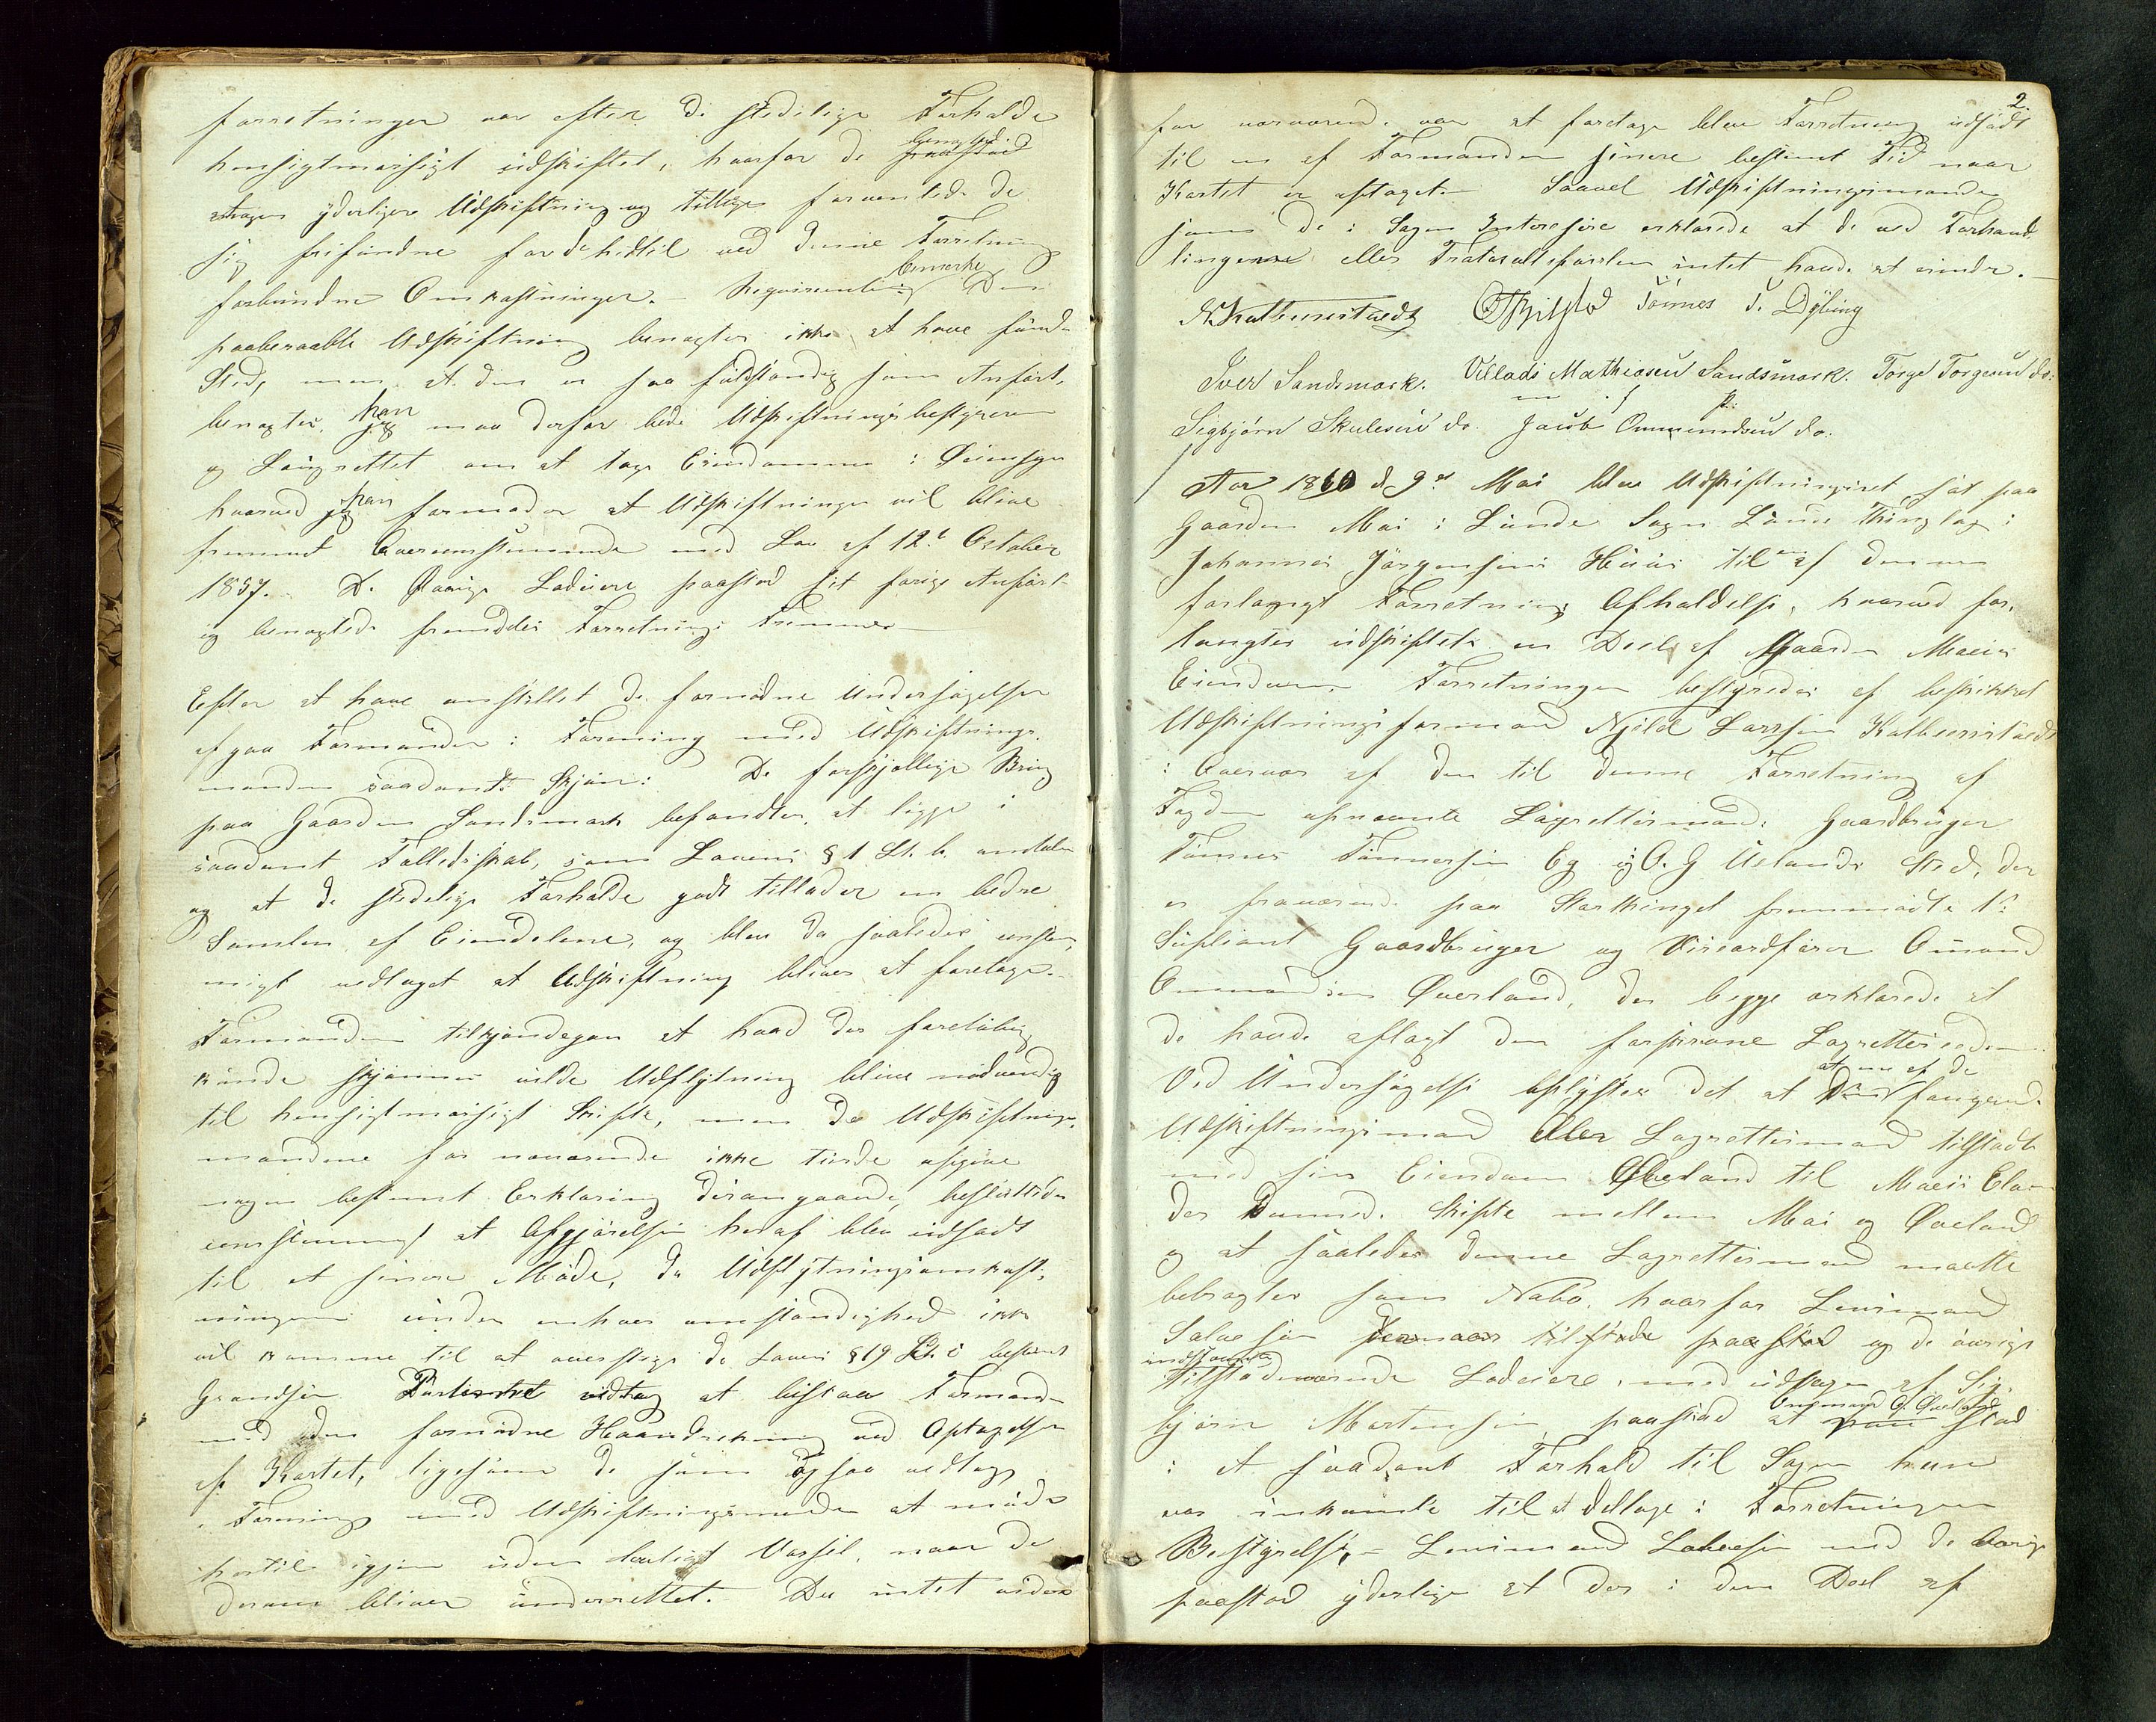 forretninger var efter de stedelige Forholde
hensigtmæssigt udskiftet, hvorfor de benægtede
nogen yderligere Udskiftning og tillige formentede de
sig frifundne for de hidtil ved denne Forretning
forbundne Omkostninger. Reqvirenten bemærkede Den
paaberaabte Udskiftning benægtes ikke at have fundet
Sted, men at den er saa fuldstændig som Anført,
benægtes, han maa derfor bede Udskiftningsbestyreren
og Laugrettet om at tage Eiendommen i Øiensyn
hvorved han formoder at Udskiftningen vil blive
fremmet Overensstemmende med Lov af 12te October
1857. De Øvrige Lodeiere paastod sit forige Anført
og benægtede fremdeles Forretnings Fremme
Efter at have anstillet de fornødne Undersøgelser
afgav Formanden i Forening med Udskiftnings-
mændene saadant Skjøn: De forskjellige Brug
paa Gaarden Sandsmark befandtes at ligge i
saadant Fælledsskab, som Lovens § 1 Lt. b. omtaler
og at de stedelige Forholde godt tillader en bedre
Samlen af Eiendelene, og blev da saaledes eenstem-
migt vedtaget at Udskiftning bliver at foretage.
Formanden tilkjendegav at hvad der foreløbig
kunde skjønnes vilde Udflytning blive nødvendig
til hensigtmæssigt Skifte, men da Udskiftnings-
mændene for nærværende ikke turde afgive
nogen bestemt Erklæring desangaaende, besluttedes
eenstemmigt at Afgjørelsen heraf blev udsadt
til et senere Møde, da Udflytningsomkost-
ningerne under enhver omstændighed ikke
vil komme til at overstige de Lovens § 19 Lt. c bestemt
Grændser. Partierne vedtog at bistaa Formanden
med den fornødne Haandrækning ved Optagelsen
af Kartet, ligesom de som ogsaa vedtog
i Forening med Udskiftningsmændene at møde
hertil igjen uden lovligt Varsel, naar de
derom bliver underrettet. Da intet videre
2.
for nærværende var at foretage blev Forretning udsadt
til en af Formanden senere bestemt Tid naar
Kartet er optaget. Saavel Udskiftningsmændene
som de i Sagen Interesserede erklærede at de ved Forhand-
lingerne eller Protocolførslen intet havde at erindre.
N. Kalhunstædt Tönnes T. Dybing
Iver Sandsmark. Villads Mathiasen Sandsmark. Torge Torgersen do.
Sigbjørn Skulesen do. Jacob Ommundsen do.
Aar 1860 d. 9de Mai blev Udskiftningsret sat paa
Gaarden Moi i Lunde Sogn Lunds Thinglag i
Johannes Jørgensens Huus til af denne
forlagt Forretnings Afholdelse, hvorved for-
langtes udskiftet en Deel af Gaarden Moies
Eiendom. Forretningen bestyredes af beskikket
Udskiftningsformand Njeld Larssen Kalhunstædt
i Overvær af den til denne Forretning af
Fogden opnævnte Lagrettesmænd: Gaardbruger
Tønnes Tønnessen Eg og O. G Ueland Sted, der
er fraværende paa Storthinget fremmødte 1ste
Supliant Gaardbruger og Vireordfører Omund
Ommundsen Øverland, der begge erklærede at
de havde aflagt den foreskrevne Lagrettesed.
Ved Undersøgelse oplystes det at at en af de fungerende
Udskiftningsmænd eller Lagrettesmænd tilstødte
med sin Eiendom Øveland til Moies Elv
der danner Skifte mellem Moi og Øveland
og at saaledes denne Lagrettesmand maatte
betragtes som Nabo, hvorfor Lensmand
Salvesen og de øvrige
tilstedeværende Lodeiere, med undtagen af Sig-
bjørn Mortensen, paastod at Ommund O. Øveland stod
i et saadant Forhold til Sagen han
var inkomte til at deltage i Forretningens
Bestyrelse, – Lensmand Salvesen med de Øvrige
paastod yderlige at der i den Deel af